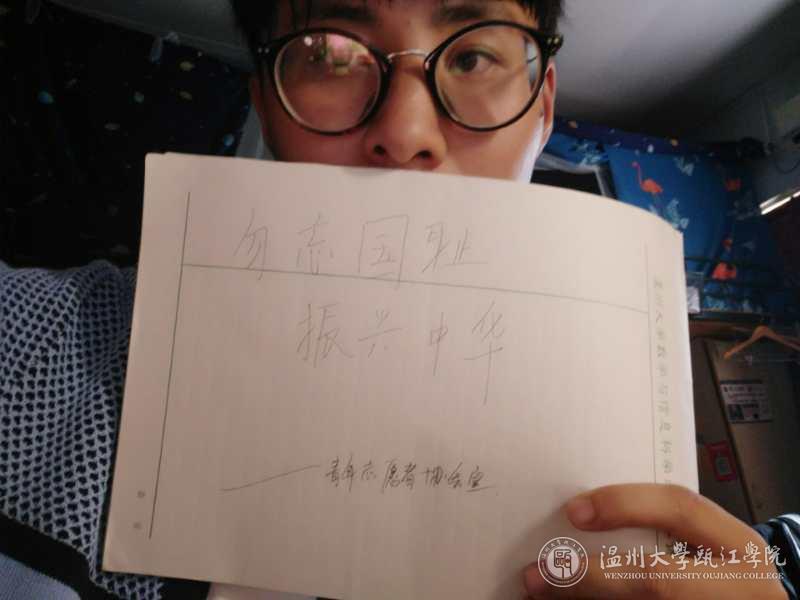 勿志国耻
振兴中华
——青年志愿者协会宣
温州大学数学与信息科学
温州大學甌江學院
WENZHOU UNIVERSITY OUJIANG COLLEGE